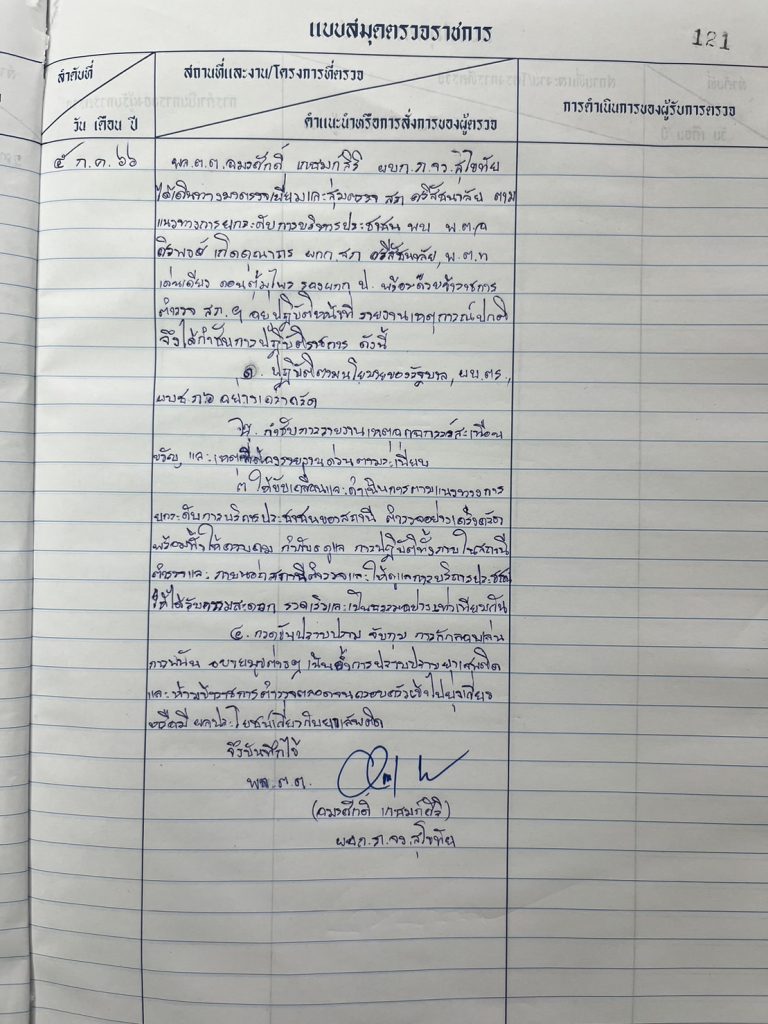 แบบสมุดตรวจราชการ
121
ลำดับที่
วัน เดือน ปี
สถานที่และงาน/โครงการที่ตรวจ
คำแนะนำหรือการสั่งการของผู้ตรวจ
การดำเนินการของผู้รับการตรวจ
๕ ก.ค. ๖๖ พล.ต.ต. ผบก.ภ.จว.สุโขทัย
ได้เดินทางมาตรวจเยี่ยมและสุ่มตรวจ สภ.ศรีสัชนาลัย ตาม
แนวทางการยกระดับการบริการประชาชน พบ พ.ต.อ
ผกก.สภ.ศรีสัชนาลัย, พ.ต.ท
รองผกก.ป. พร้อมด้วยข้าราชการ
ตำรวจ สภ.ฯ อยู่ปฏิบัติหน้าที่ รายงานเหตุการณ์ปกติ
จึงได้กำชับการปฏิบัติราชการ ดังนี้
๑. ปฏิบัติตามนโยบายของรัฐบาล, ผบ.ตร.,
ผบช.ภ.๖ อย่างเคร่งครัด
๒. กำชับการรายงานเหตุอุกฉกรรจ์สะเทือน
ขวัญ และเหตุที่ต้องรายงานด่วนตามระเบียบ
๓ ให้ขับเคลื่อนและดำเนินการตามแนวทางการ
ยกระดับการบริการประชาชนของสถานี ตำรวจอย่างเคร่งครัด
พร้อมทั้งให้ควบคุม กำกับดูแล การปฏิบัติทั้งภายในสถานี
ตำรวจและ ภายนอกสถานีตำรวจและให้ดูแลการบริการประชาชน
ให้ได้รับความสะดวก รวดเร็วและเป็นธรรมอย่างเท่าเทียมกัน
๔. กวดขันปราบปราม จับกุม การลักลอบเล่น
การพนัน อบายมุขต่างๆ เน้นย้ำการปราบปรามยาเสพติด
และห้ามข้าราชการตำรวจตลอดจนครอบครัวเข้าไปยุ่งเกี่ยว
หรือมีผลประโยชน์เกี่ยวกับยาเสพติด
จึงบันทึกไว้
พล.ต.ต.
ผบก.ภ.จว.สุโขทัย